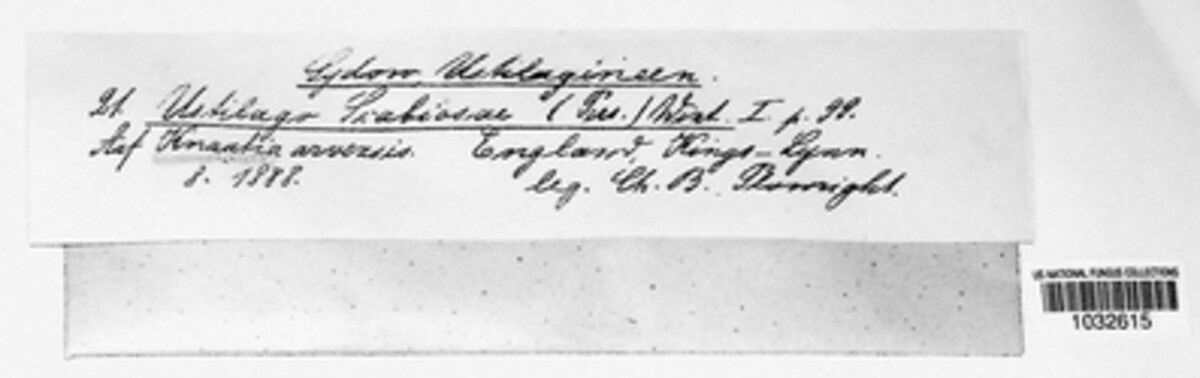 Sydow, Ustilagineen.
21. Ustilago Scabiosae (Pers.) Wint. I p. 99.
Auf Knautia arvensis. England, Kings-Lynn.
8. 1888. leg. Ch. B. Plowright.
US NATIONAL FUNGUS COLLECTIONS
1032615